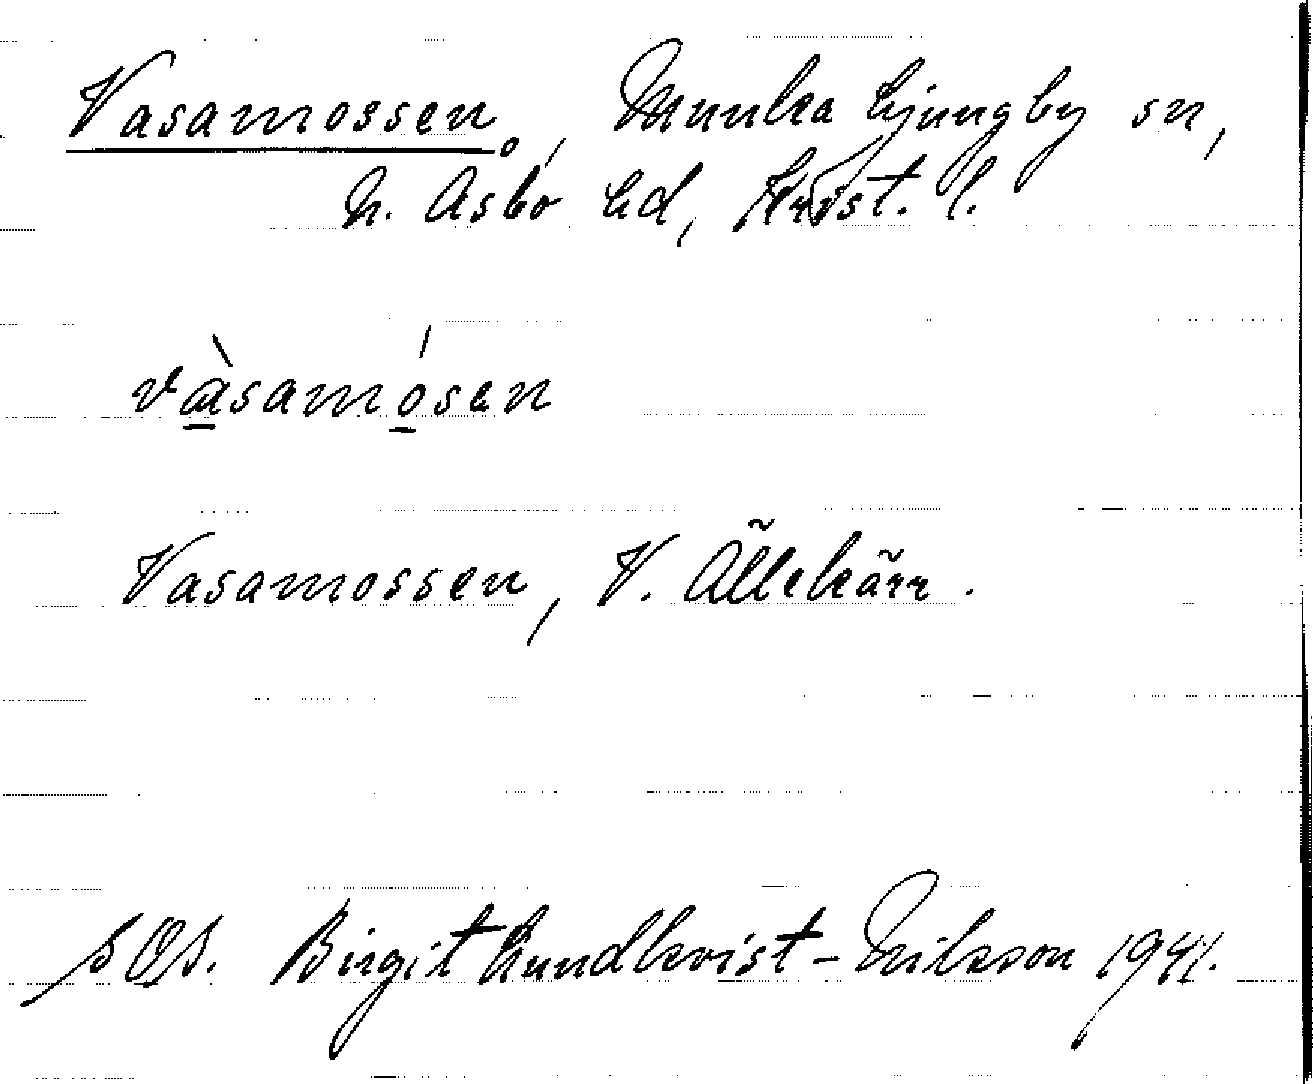 Vasamossen, Munka Ljungby sn,
N. Åsbo hd, Krist. l.
vàsamósen
Vasamossen, V. Ällekärr.
SOS. Birgit Lundkvist-Eriksson 1941.